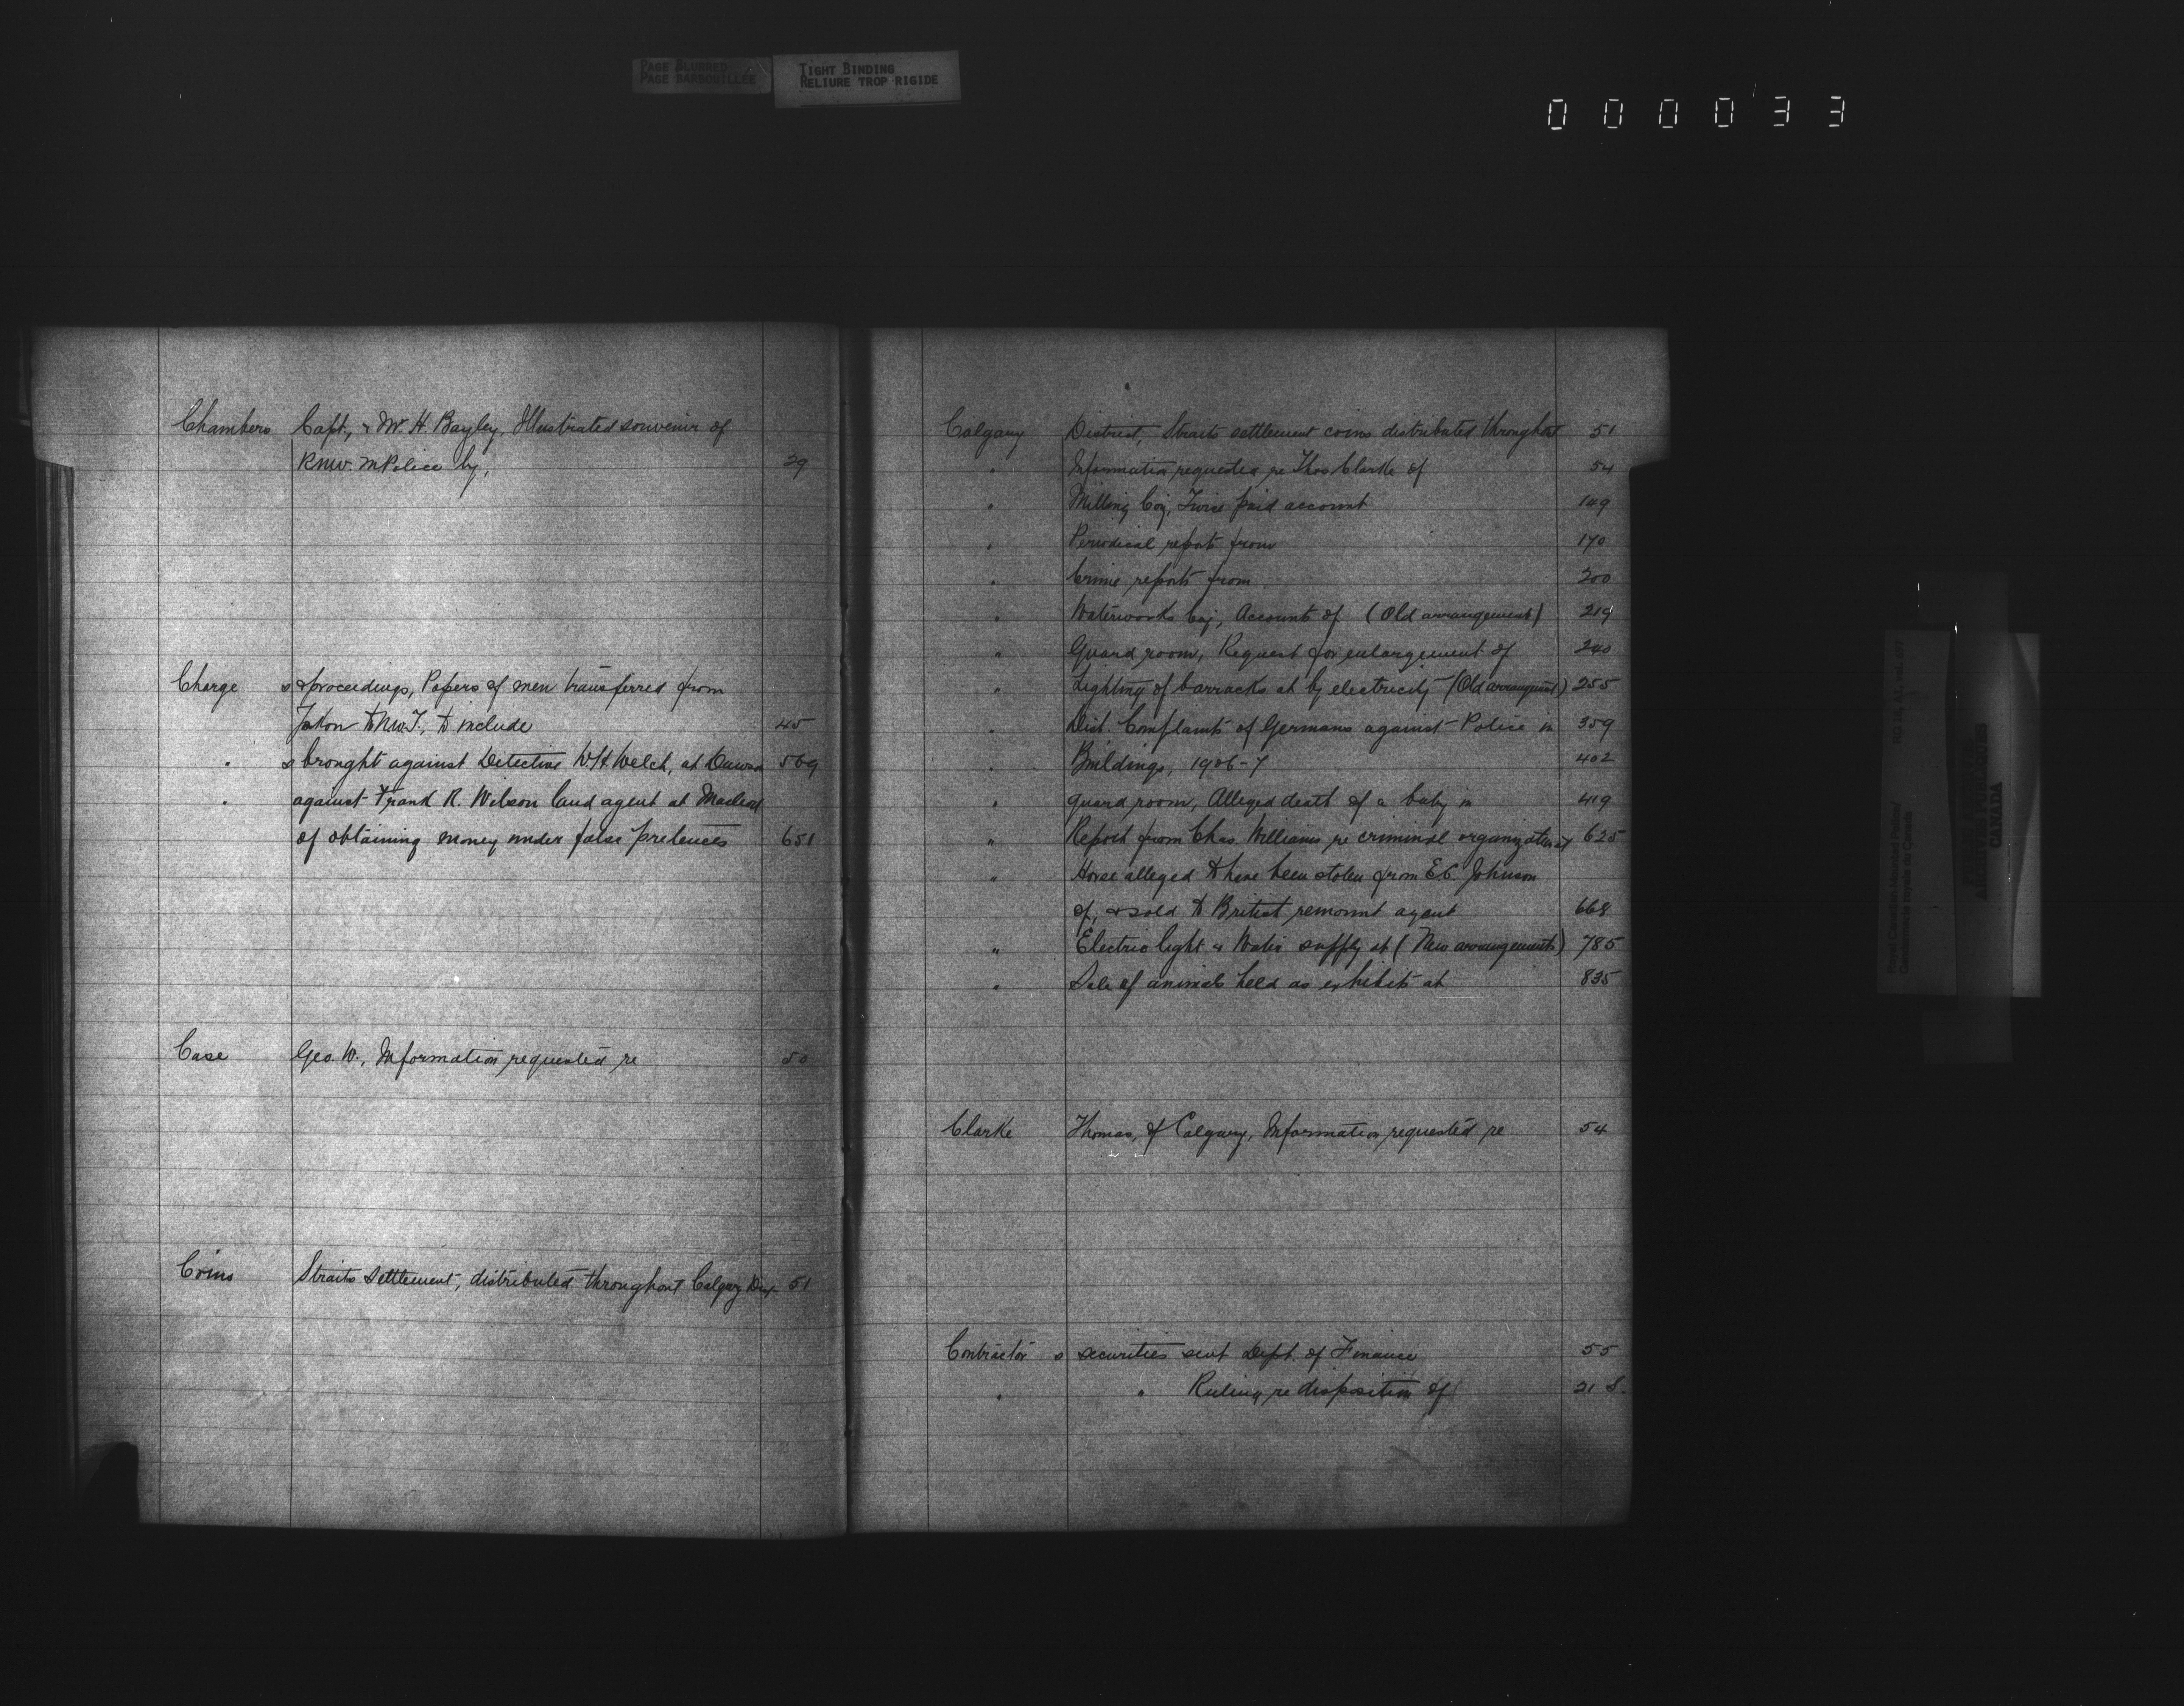 PAGE BLURRED
PAGE BARBOUILLÉE
TIGHT BINDING
RELIURE TROP RIGIDE
000033
Chambers Capt., & W. H. Bayley, Illustrated souvenir of
RNW. M Police by, 29
Charge s & proceedings, Papers of men transferred from
Yukon to NW.T., to include 45
" s brought against Detective W H Welch, at Dawson 569
" against Frank R. Wilson land agent at Macleod
of obtaining money under false pretences 651
Case Geo. W., Information requested re 50
Coins Straits Settlement, distributed throughout Calgary Dist 51
Calgary District, Straits settlement coins distributed throughout 51
" Information requested re Thos Clarke of 54
" Milling Coy, Twice paid account 149
" Periodical reports from 170
" Crime reports from 200
" Waterworks Coy, Accounts of (Old arrangement) 219
" Guard room, Request for enlargement of 240
" Lighting of barracks at by electricity (Old arrangement) 255
" Dist. Complaints of Germans against Police in 359
" Buildings, 1906-7 402
" guard room, Alleged death of a baby in 419
" Report from Chas. Williams re criminal organization at 625
" Horse alleged to have been stolen from E.C. Johnson
of, & sold to British remount agent 668
" Electric light & Water supply at (New arrangements) 785
" Sale of animals held as exhibits at 835
Clarke Thomas, of Calgary, Information requested re 54
Contractor s securities sent Dept. of Finance 55
" " Ruling re disposition of 21 S.
Royal Canadian Mounted Police/
Gendarmerie royale du Canada
RG 18, A1, vol. 697
PUBLIC ARCHIVES
ARCHIVES PUBLIQUES
CANADA